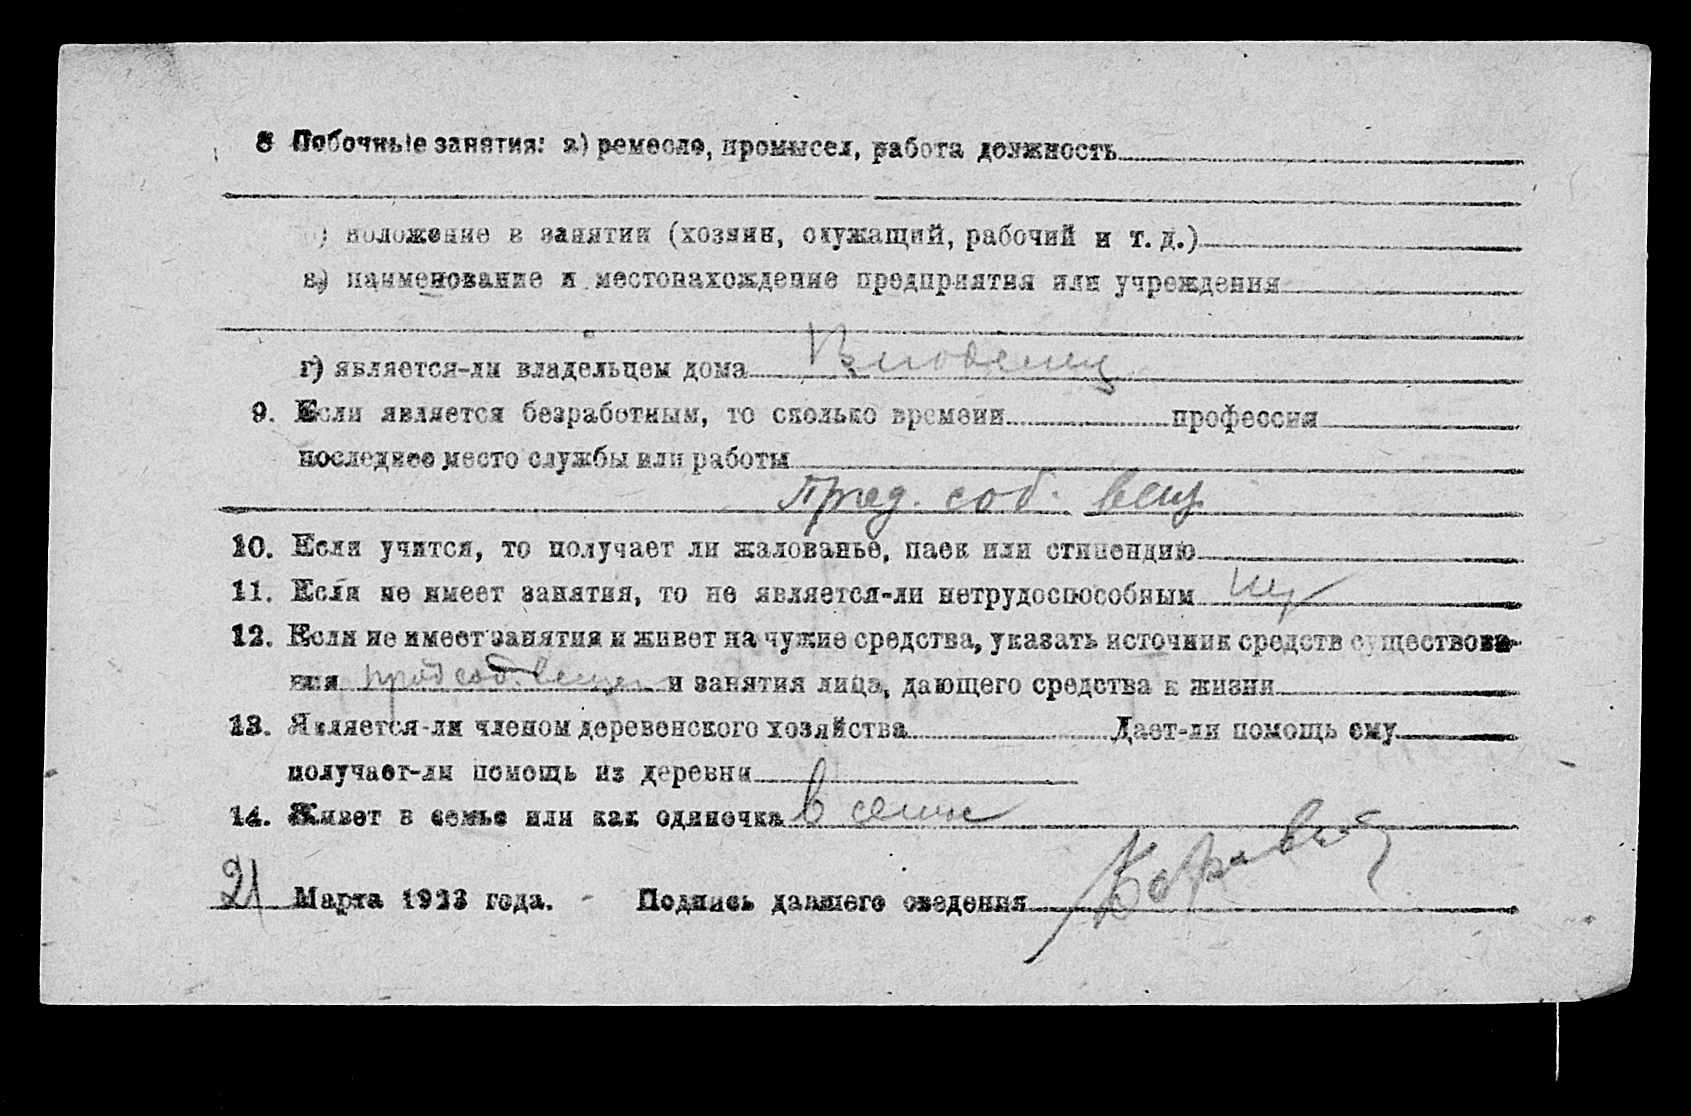 8 Побочные занятия: а) ремесло, промысел, работа должность
б) положение в занятии (хозяин, служащий, рабочий и т. д.)
в) наименование и местонахождение предприятия или учреждения
г) является-ли владельцем дома
9. Если является безработным, то сколько времени профессия
последнее место службы или работы
Прод. соб. вещ
10. Если учится, то получает ли жалованье, паек или стипендию
11. Если не имеет занятия, то не является-ли нетрудоспособным нет
12. Если не имеет занятия и живет на чужие средства, указать источник средств существова-
ния прод соб. вещей и занятия лица, дающего средства к жизни
13. Является-ли членом деревенского хозяйства Дает-ли помощь ему
получает-ли помощь из деревни
14. Живет в семье или как одиночка в семье
21 Марта 1923 года. - Подпись давшего сведения